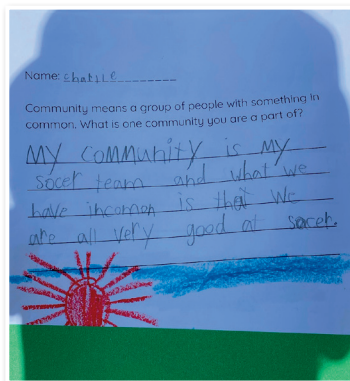 Name: Charlie
Community means a group of people with something in
common. What is one community you are a part of?
My community is my
socer team and what we
have incomon is that we
are all very good at socer.